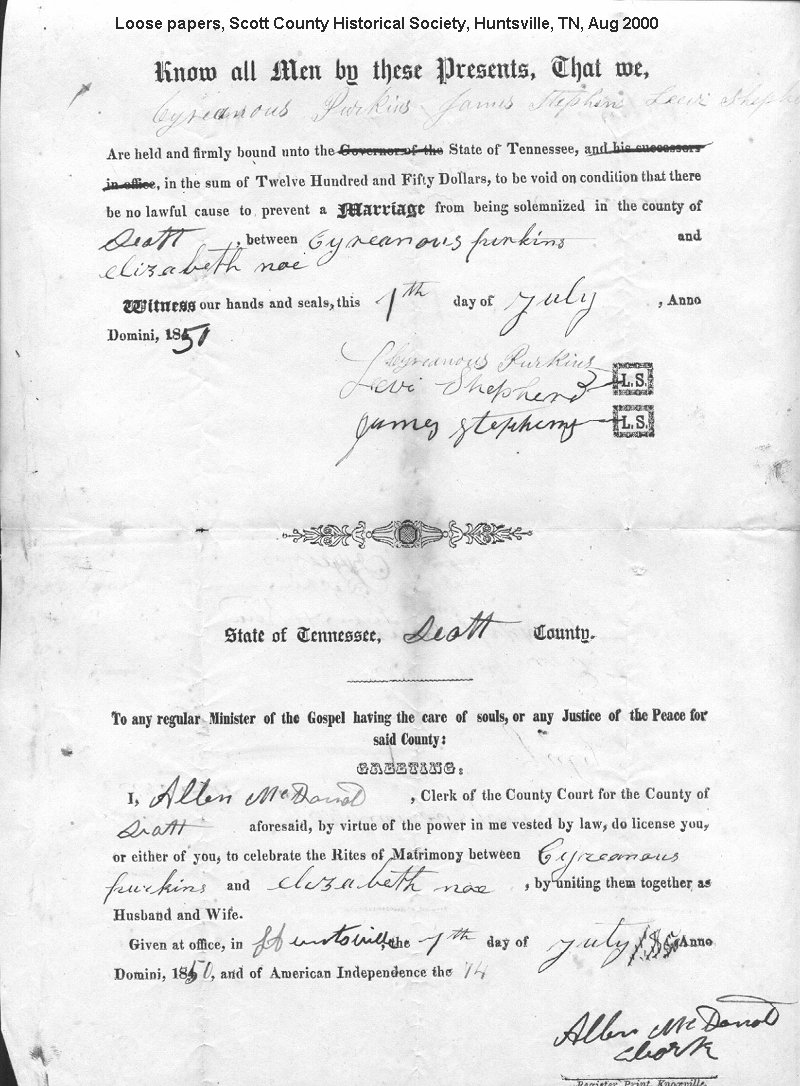 Loose papers, Scott County Historical Society, Huntsville, TN, Aug 2000
Know all Men by these Presents, That we,
Cyreanous Purkins James Stephens Levi Sheph
Are held and firmly bound unto the Governor of the State of Tennessee, and his successors
in office, in the sum of Twelve Hundred and Fifty Dollars, to be void on condition that there
be no lawful cause to prevent a Marriage from being solemnized in the county of
Scott , between Cyreanous purkins and
elizabeth noe
Witness our hands and seals, this 1th day of july , Anno
Domini, 1850
Cyreanous Purkins
Levi Shepherd L.S.
James Stephens L.S.
State of Tennessee, Scott County.
To any regular Minister of the Gospel having the care of souls, or any Justice of the Peace for
said County:
GREETING:
I, Allen McDonold , Clerk of the County Court for the County of
Scott aforesaid, by virtue of the power in me vested by law, do license you,
or either of you, to celebrate the Rites of Matrimony between Cyreanous
purkins and elizabeth noe , by uniting them together as
Husband and Wife.
Given at office, in Huntsville, the 1th day of july 185 Anno
Domini, 1850, and of American Independence the 74
Allen McDonold
Clerk
Register Print, Knoxville